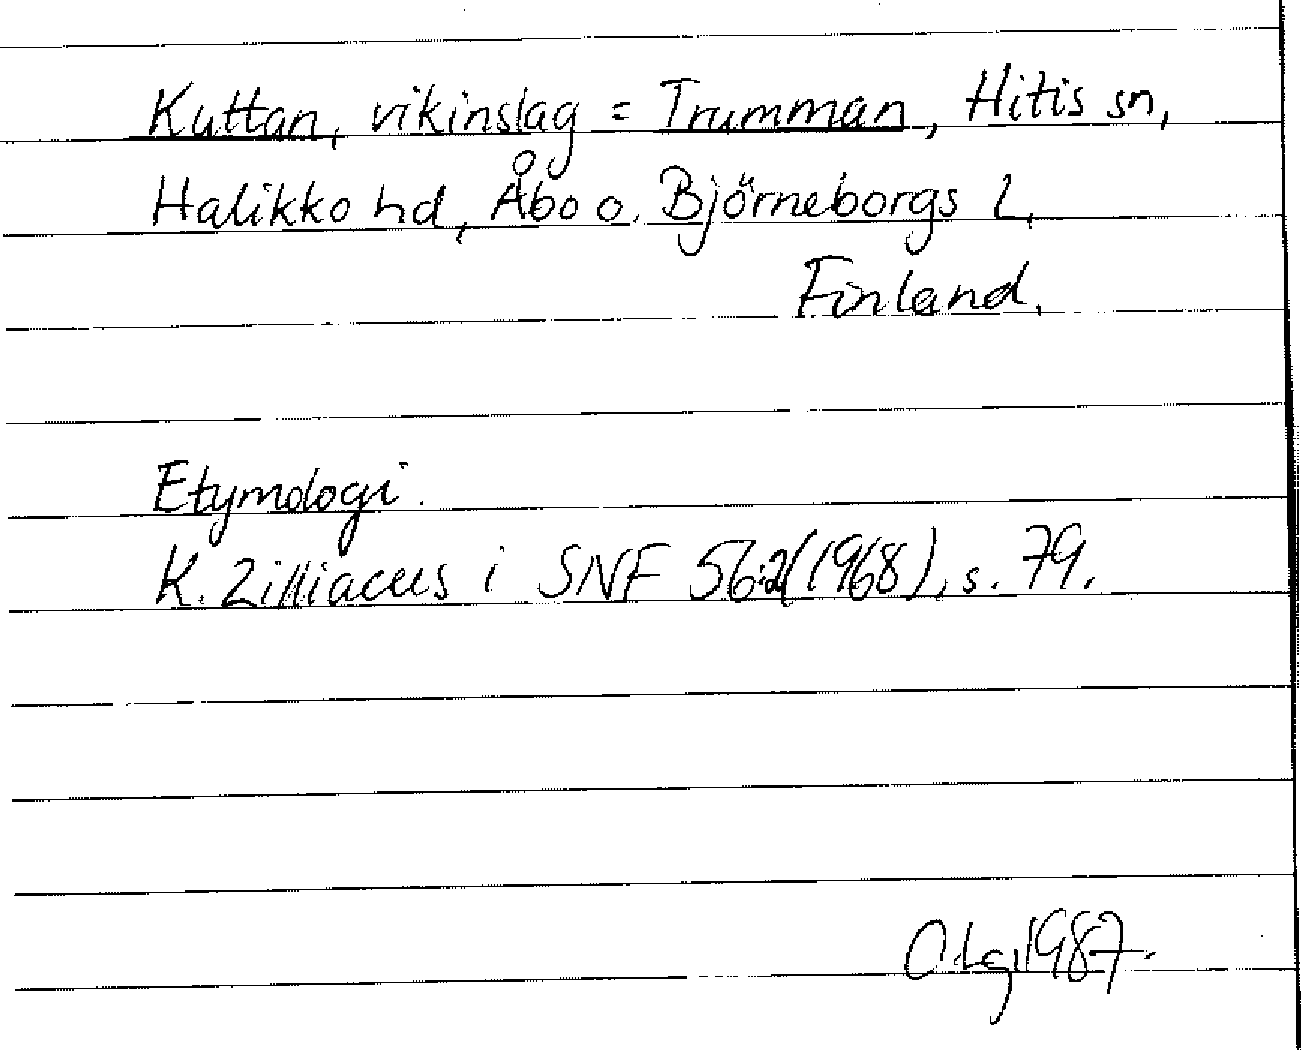 Kuttan, vikinslag = Trumman, Hitis sn,
Halikko hd, Åbo o. Björneborgs l,
Finland.
Etymologi.
K. Zilliacus i SNF 56:2(1968), s. 79.
1987.